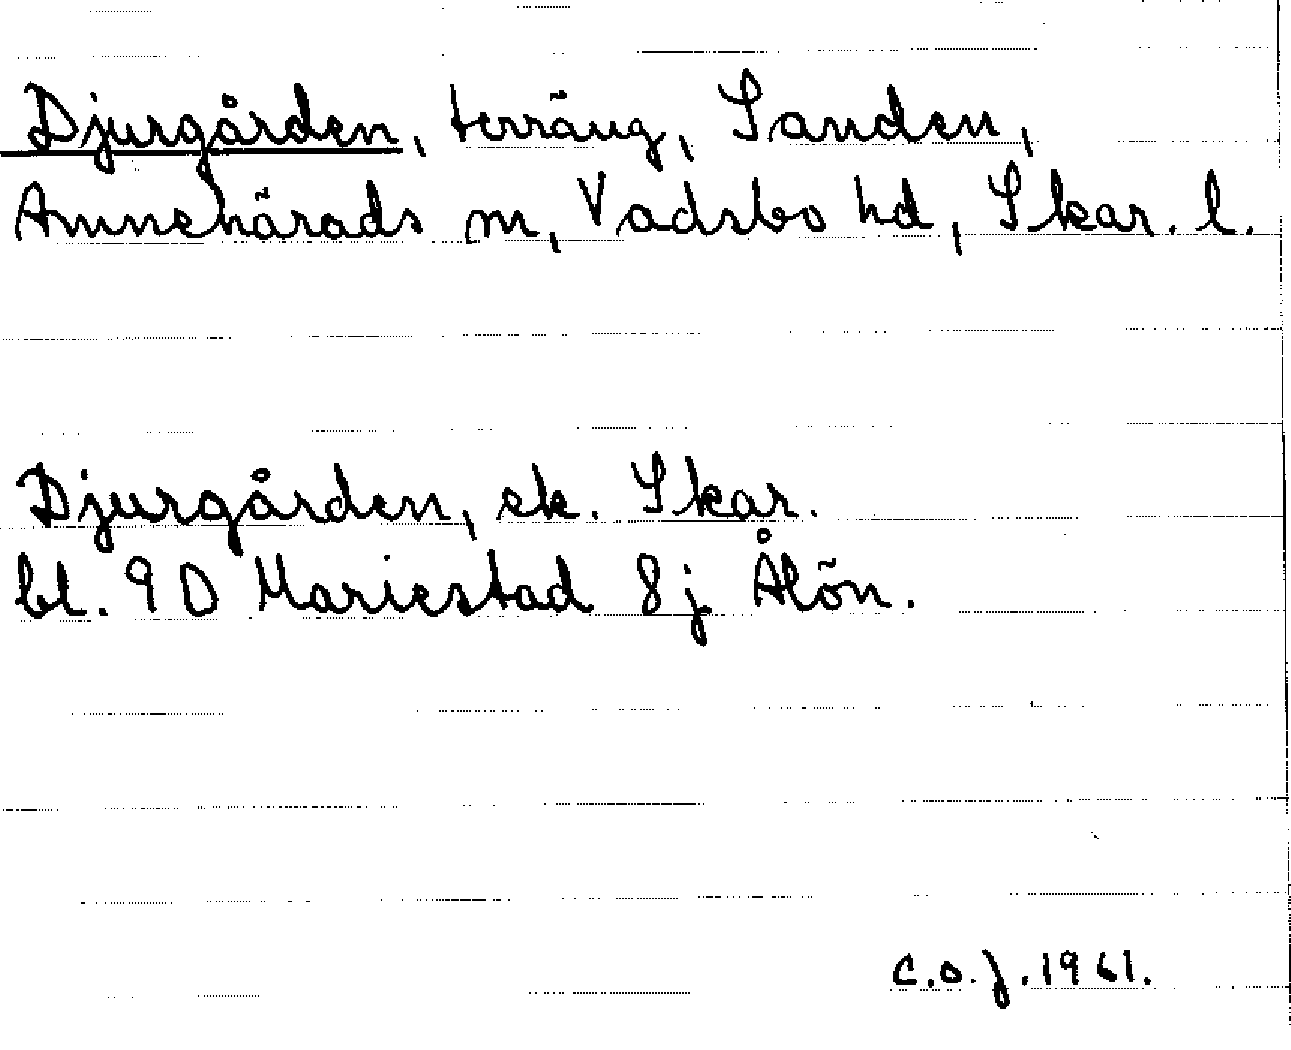 Djurgården, terräng, Sanden,
Amnehärads sn, Vadsbo hd, Skar. l.
Djurgården, ek. Skar.
bl. 9 D Mariestad 8j Ålön.
C.O.J. 1961.